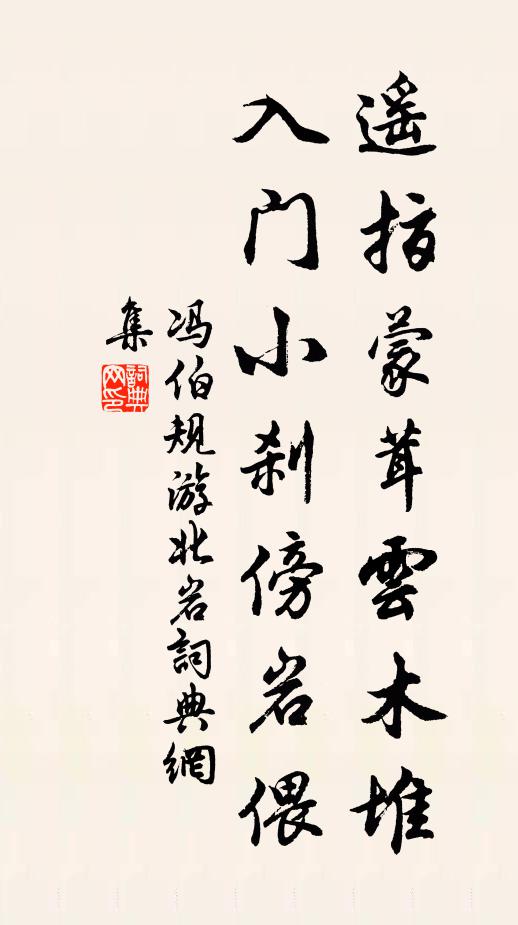 遥指蒙茸雲木堆
入门小刹傍岩偎
冯伯规游北岩詞典網
集
詞典
网印